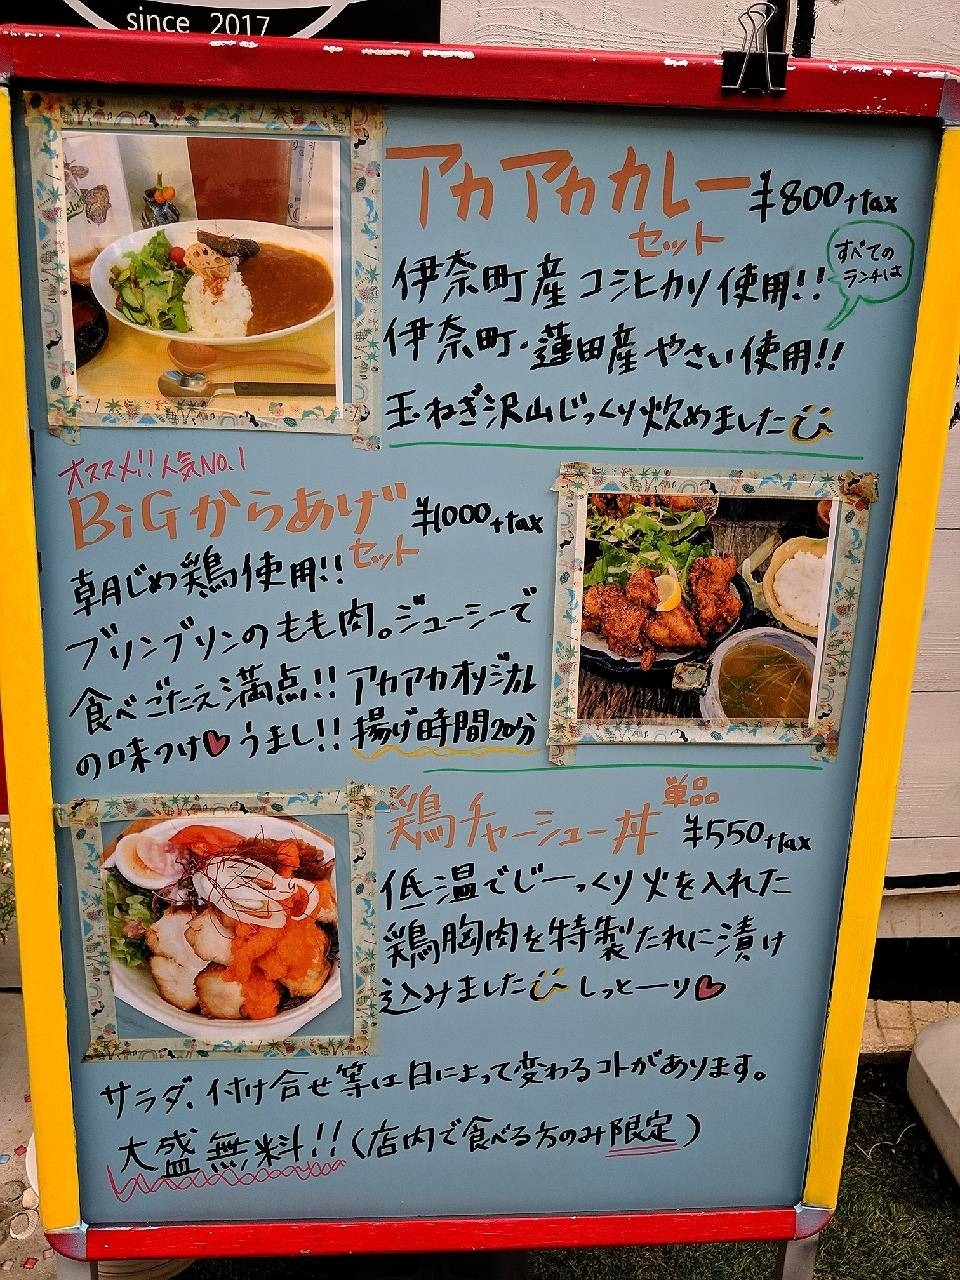 since 2017
アカアカカレー ¥800+tax
セット
すべての
ランチは
伊奈町産コシヒカリ使用!!
伊奈町・蓮田産やさい使用!!
玉ねぎ沢山じっくり炊めました
オススメ!!人気NO.1
BiGからあげ ¥1000+tax
セット
朝じめ鶏使用!!
ブリンブリンのもも肉。ジューシーで
食べごたえ満点!!アカアカオリジナル
の味つけ♥うまし!!揚げ時間20分
鶏チャーシュー丼 単品 ¥550+tax
低温でじーっくり火を入れた
鶏胸肉を特製たれに漬け
込みました しっとーり♥
サラダ、付け合せ等は日によって変わるコトがあります。
大盛無料!!(店内で食べる方のみ限定)